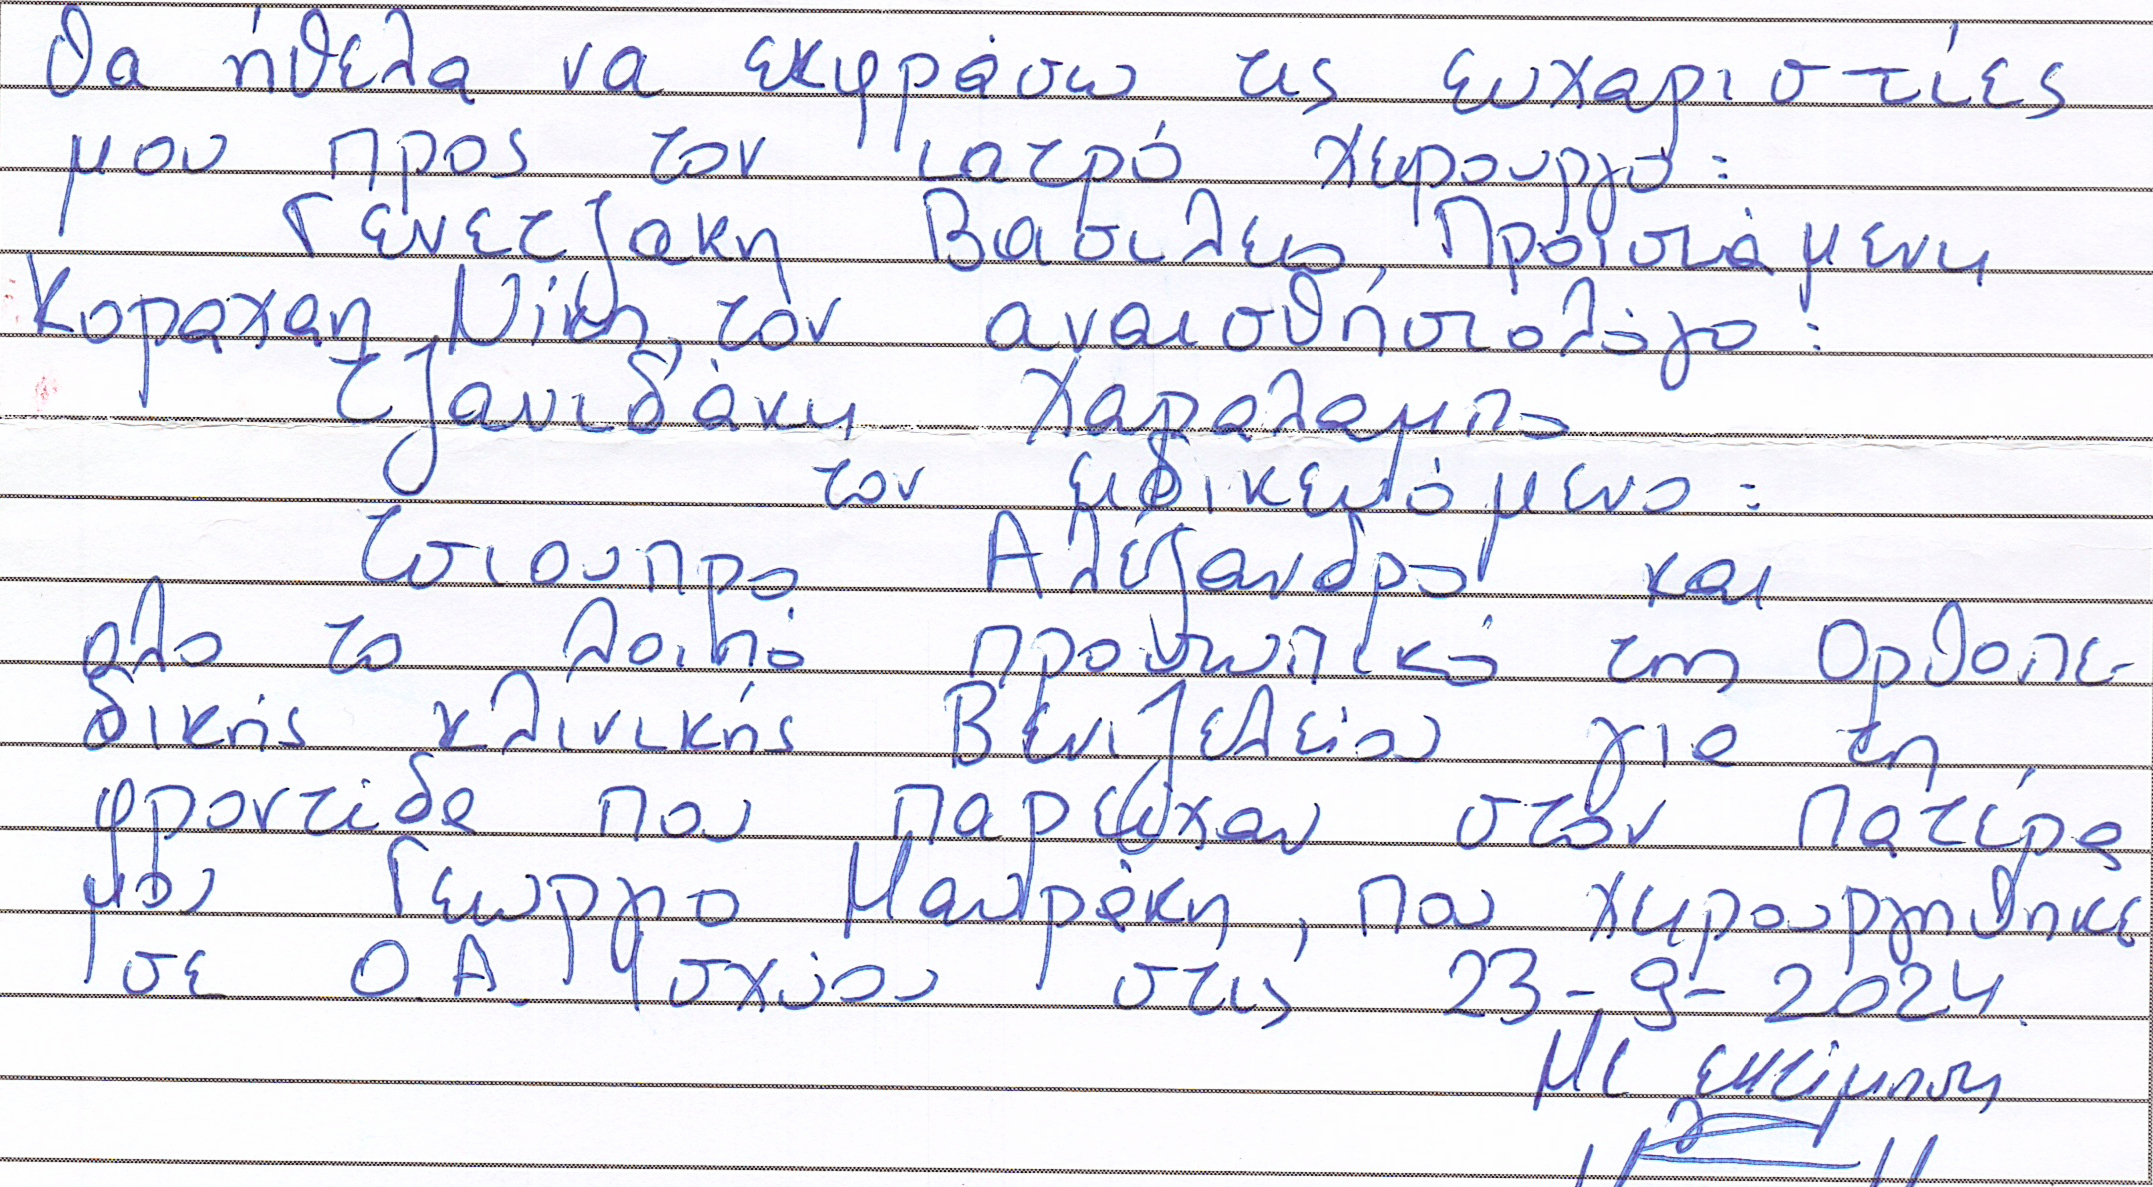 θα ήθελα να εκφράσω τις ευχαριστίες
μου προς τον ιατρό χειρουργό:
Γενετζακη Βασιλειο, Προισταμενη
Κοραχαη Νίκη, τον αναισθήστολόγο:
Τζανιδάκη Χαραλαμπο
τον ειδικευόμενο:
Τσιουπρο Αλέξανδρο και
ολο το λοιπό προσωπικό της Ορθοπε-
δικής κλινικής Βενιζελείου για τη
φροντίδα που παρείχαν στον πατέρα
μου Γεωργιο Μαυράκη, που χειρουργήθηκε
σε Ο.Α. Ισχύου στις 23-9-2024.
Με εκτίμηση